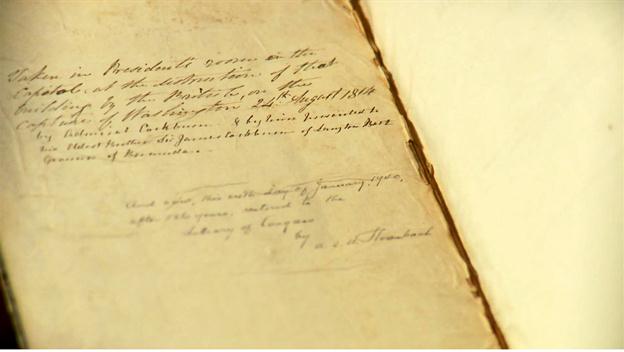 Taken in Presidents room in the
Capitol, at the destruction of that
building by the British, on the
capture of Washington 24th August 1814
by Admiral Cockburn & by him Presented to
his Eldest Brother Sir James Cockburn of Langton Bart
Governor of Bermuda.
And now, this day of January, 1940,
after years, restored to the
Library of Congress
by A. S. W. Rosenbach